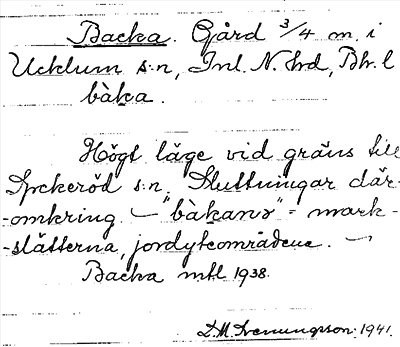 Backa. Gård 3/4 m. i
Ucklum s:n, Inl. N. hrd, Bh. l
bàka.
Högt läge vid gräns till
Spekeröd s:n. Sluttningar där-
-omkring. — "bàkanə" = mark-
-slätterna, jordyteområdene. —
Backa mtl 1938.
D.M. 1941.